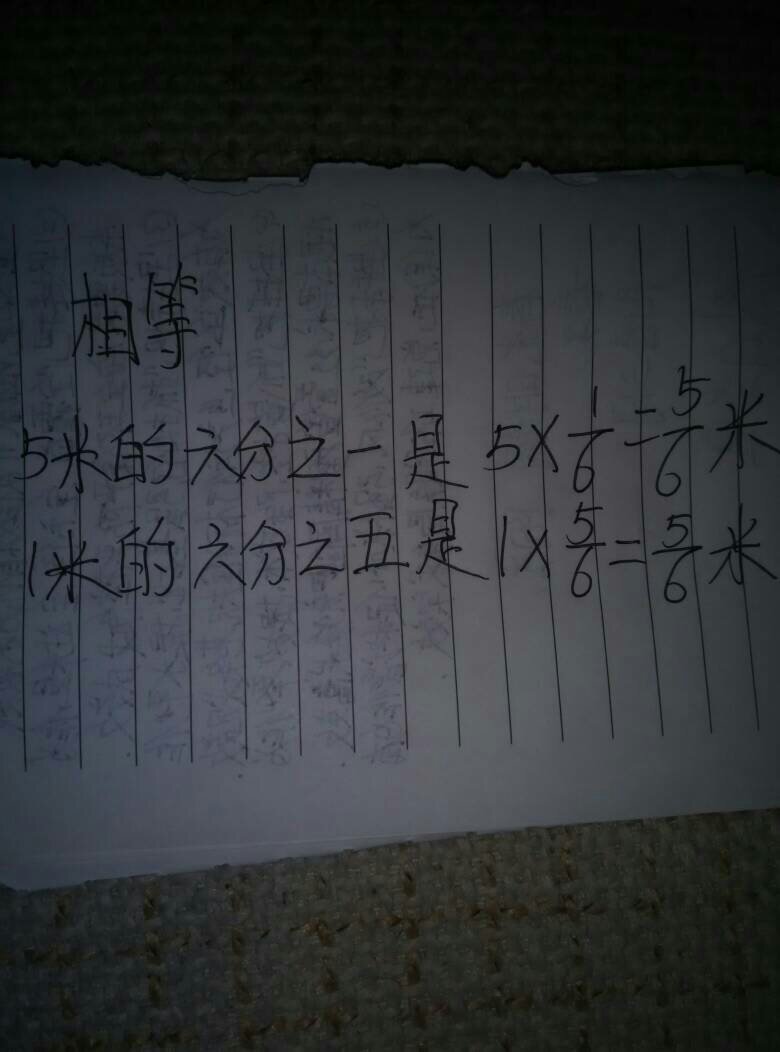 相等
5米的六分之一是 5×1/6=5/6米
1米的六分之五是 1×5/6=5/6米